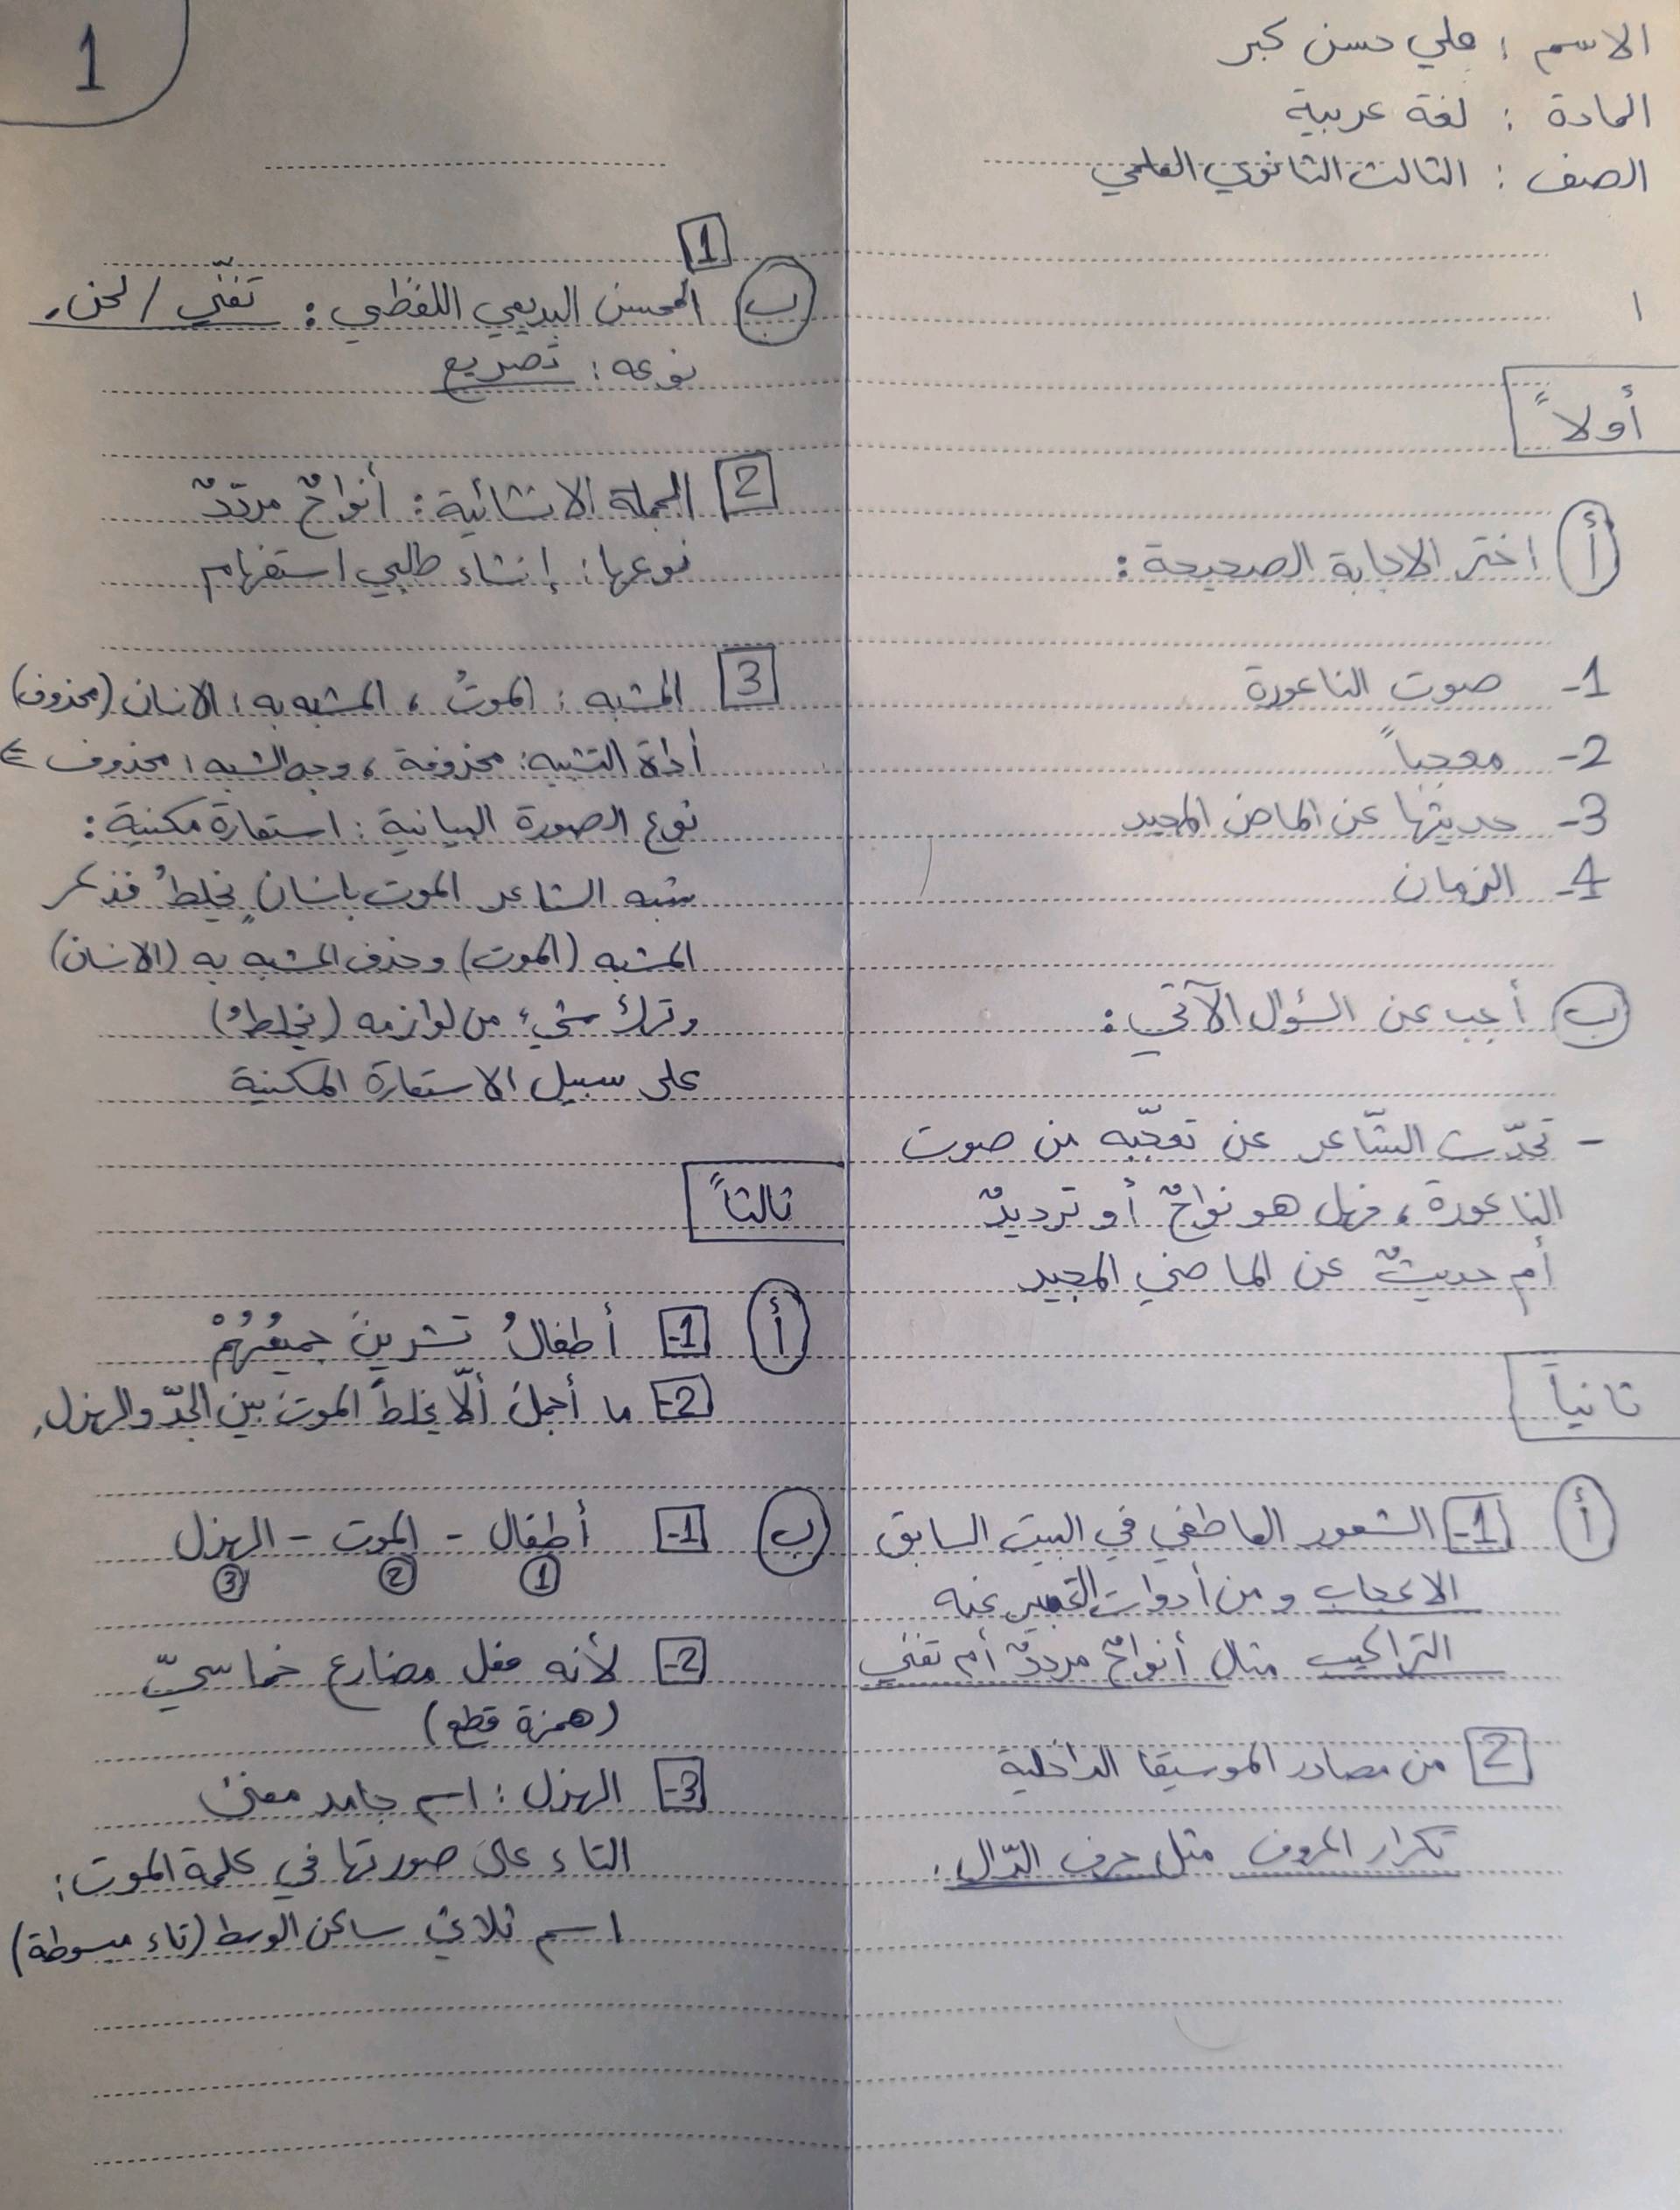 الاسم : علي حسن كبر
المادة : لغة عربية
الصف : الثالث الثانوي العلمي
ا
أولاً
أ اختر الاجابة الصحيحة :
1- صوت الناعورة
2- موجباً
3- حديثها عن الماض المجيد
4- الزمان
ب أجب عن السؤال الآتي :
- تحدّث الشّاعر عن تعجّبه من صوت
الناعورة ، فهل هو نواحٌ أو ترديدٌ
أم حديثٌ عن الماضي المجيد
ثانياً
أ 1- الشعور العاطفي في البيت السابق
الاعجاب ومن أدوات التعبير عنه
التراكيب مثال أنواحٌ مرددٌ أم تغني
2 من مصادر الموسيقا الداخلية
تكرار الحروف مثل حرف الدّال .
1
1
ب المحسن البديعي اللفظي : تغنّي / لحن .
نوعه : تصريع
2 الجملة الانشائية : أنواحٌ مردّدٌ
نوعها : إنشاء طلبي استفهام
3 المشبه : الموتُ ، المشبه به : الانسان (محذوف)
أداة التشبيه : محذوفة ، وجه الشبه : محذوف ⇐
نوع الصورة البيانية : استعارة مكنية :
شبه الشاعر الموت بانسانٍ يخلطُ فذكر
المشبه (الموت) وحذف المشبه به (الانسان)
وترك شيء من لوازمه (يخلطُ)
على سبيل الاستعارة المكنية
ثالثاً
أ 1- أطفالُ تشرينَ جميعُهُمْ
2- ما أجملَ ألّا يخلطَ الموت بين الجدّ والهزل .
ب 1- أطفال - الموت - الهزل
1 2 3
2- لأنه فعل مضارع خماسيّ
(همزة قطع)
3- الهزل : اسم جامد معنى
التاء على صورتها في كلمة الموت :
اسم ثلاثي ساكن الوسط (تاء مبسوطة)